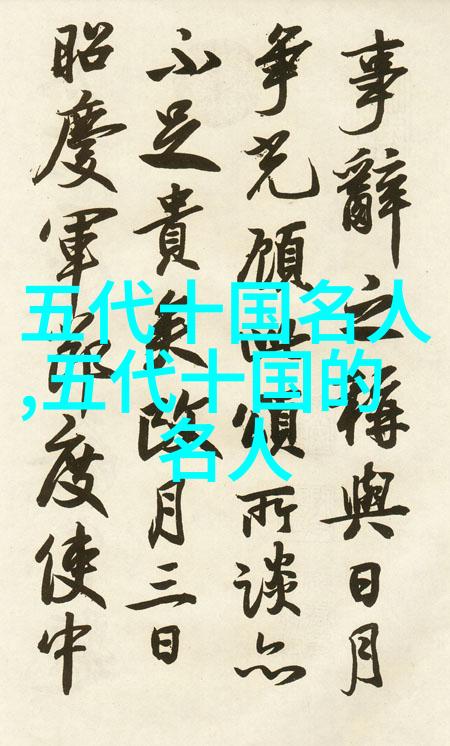 五代十国名人
,五代十国的
名人
事辭之稱與日月
爭光顧頌所談亦
不足貴矣改月三日
昭慶軍節度使中